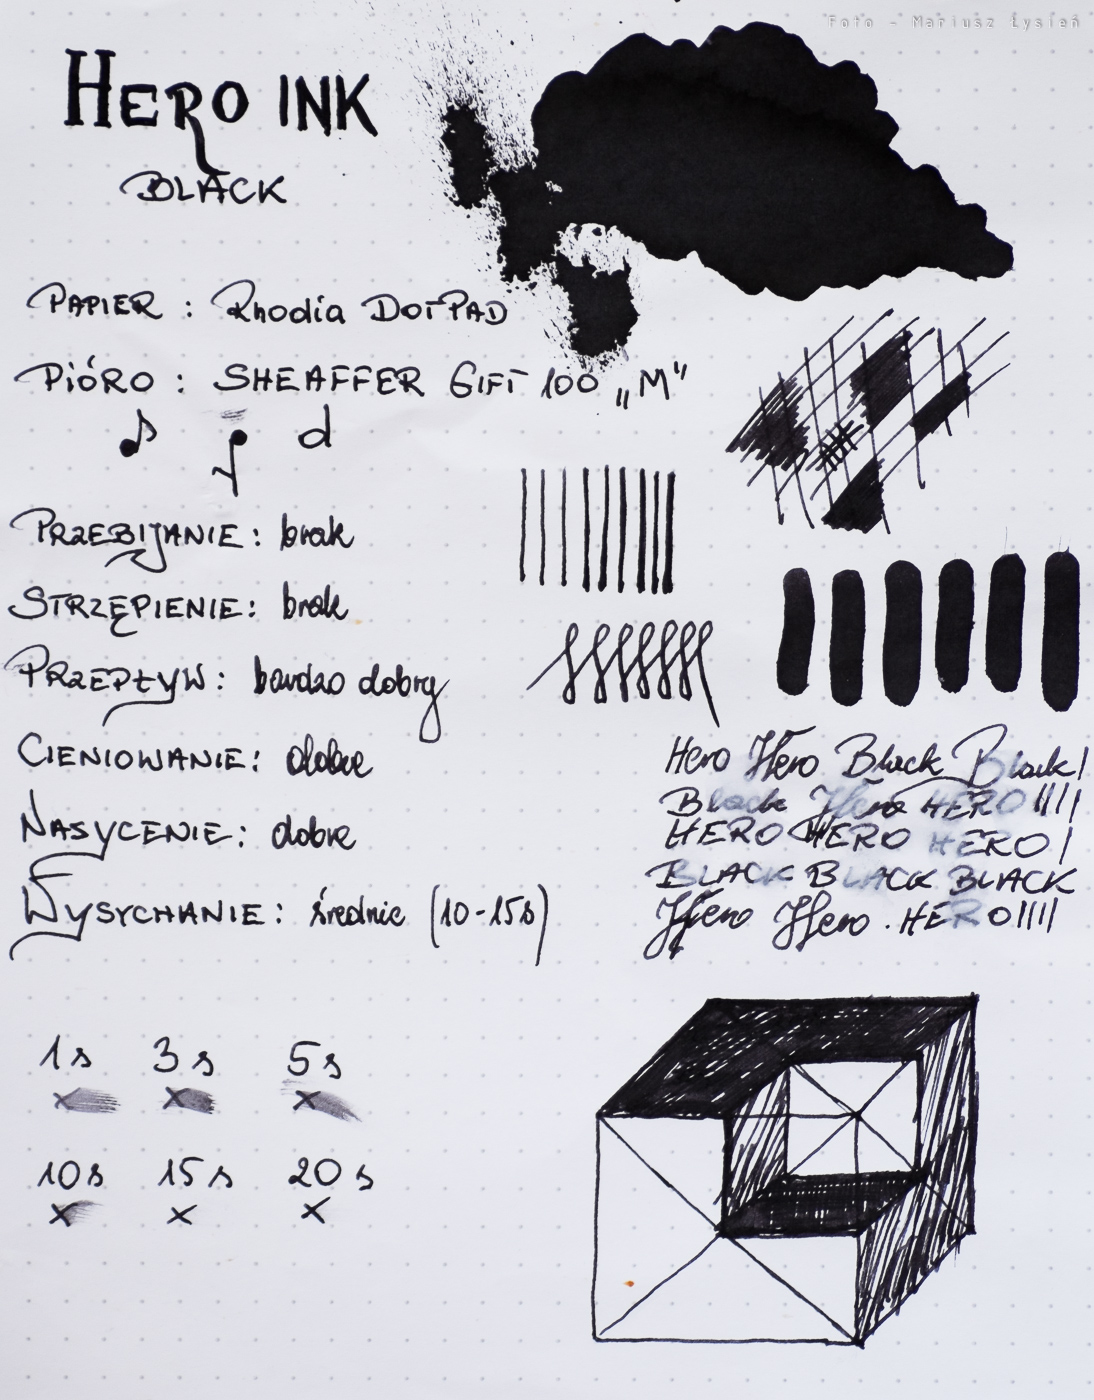 Foto - Mariusz Łysień
HERO INK
BLACK
PAPIER : Rhodia DOTPAD
PIÓRO : SHEAFFER GIFT 100 „M"
PRZEBIJANIE: brak
STRZĘPIENIE: brak
PRZEPŁYW: bardzo dobry
CIENIOWANIE: dobre
NASYCENIE: dobre
WYSYCHANIE: średnie (10-15s)
Hero Hero Black Black!
Black Hero HERO !!!!
HERO HERO HERO !
BLACK BLACK BLACK
Hero Hero . HERO !!!!
1s 3s 5s
x x x
10s 15s 20s
x x x